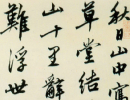 秋日山中寓
草堂結
山十里辭
難浮世